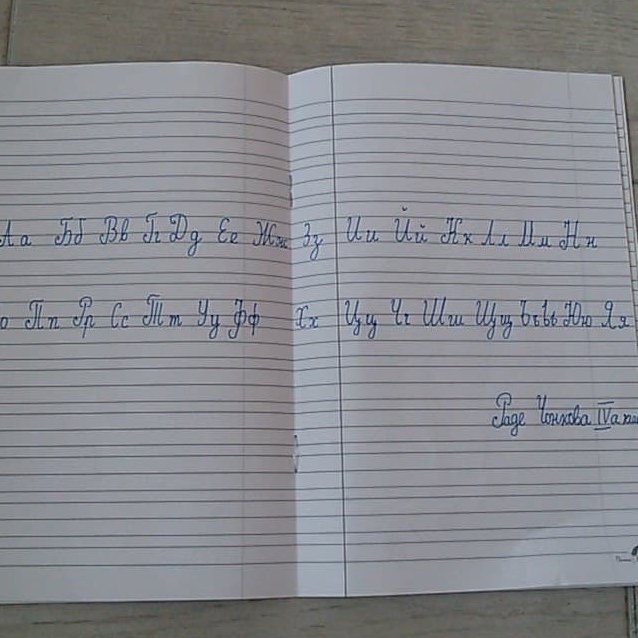 Аа Бб Вв Гг Дд Ее Жж Зз Ии Йй Кк Лл Мм Нн
о Пп Рр Сс Тт Уу Фф Хх Цц Чч Шш Щщ Ъъ ь Юю Яя
Раде Чонкова IV а